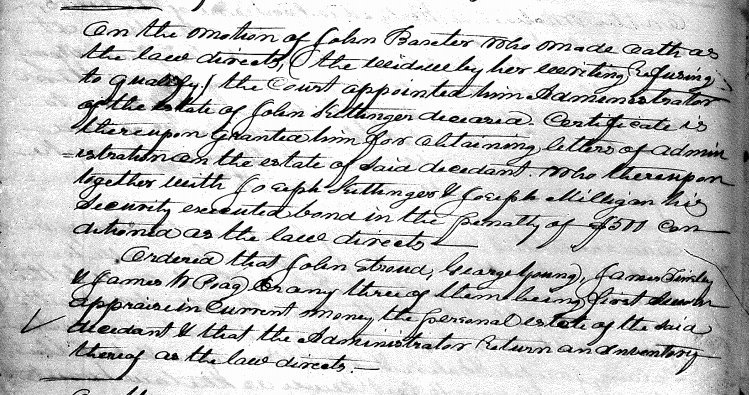 On the motion of John Baxter who made oath as
the law directs, (the widow by her writing refusing
to qualify) the Court appointed him Administrator
of the estate of John Kettinger deceased. Certificate is
thereupon granted him for obtaining letters of admin
=istration on the estate of said decedant, who thereupon
together with Joseph Kettinger & Joseph Milligan his
security executed bond in the penalty of $500 con
ditioned as the law directs —
Ordered that John Stroud, George Young, James
& James W Poag or any three of them being first sworn
appraise in current money the personal estate of the said
decedant & that the Administrator return an inventory
thereof as the law directs. —